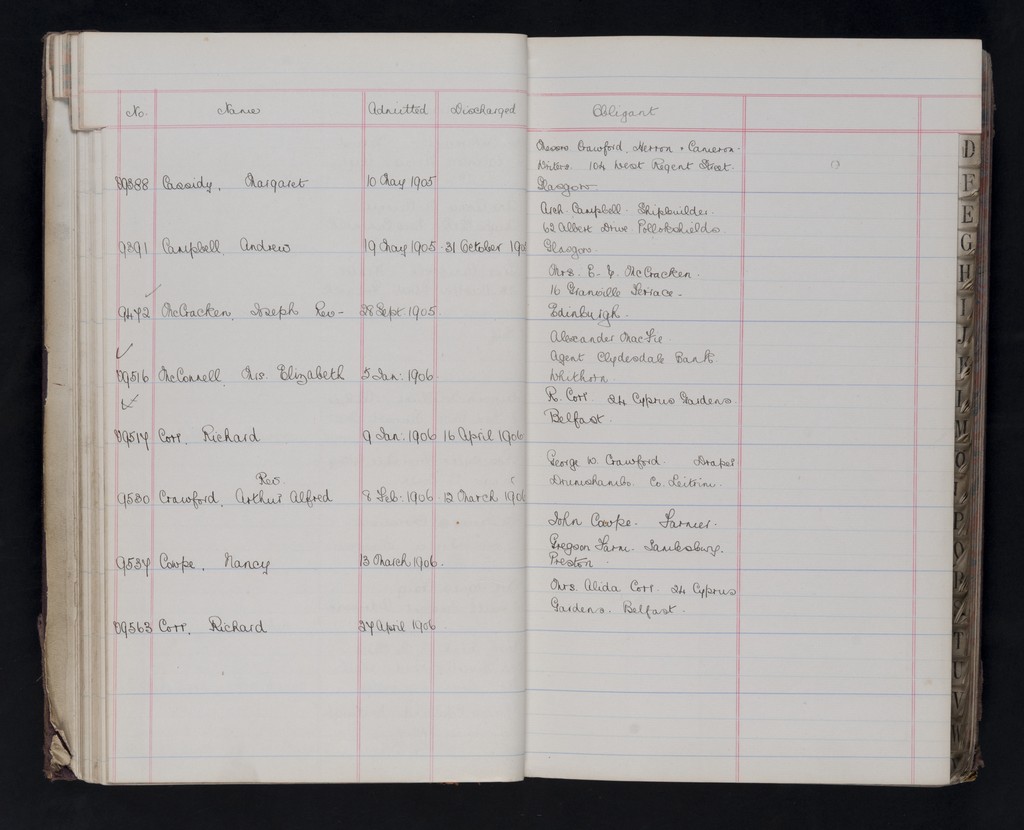 No. Name Admitted Discharged Obligant
Messrs Crawford, Herron & Cameron.
Writers. 104 West Regent Street.
9388 Cassidy, Margaret 10 May 1905 Glasgow
Arch. Campbell. Shipbuilder.
62 Albert Drive Pollokshields
9391 Campbell, Andrew 19 May 1905. 31 October 190 Glasgow.
Mrs. E. McCracken.
16 Granville Terrace.
9472 McCracken, Joseph Rev- 28 Sept 1905. Edinburgh.
Alexander MacFie
Agent Clydesdale Bank
9516 McConnell, Mrs. Elizabeth 5 Jan: 1906. Whithorn
R. Corr. 24 Cyprus Gardens
Belfast.
9517 Corr, Richard 9 Jan: 1906 16 April 1906
George W. Crawford. Draper
Rev. Drumshambo. Co. Leitrim.
9530 Crawford, Arthur Alfred 8 Feb: 1906. 12 March 1906
John Cowpe. Farmer.
Gregson Farm. Samlesbury.
9537 Cowpe, Nancy 13 March 1906. Preston.
Mrs. Alida Corr. 24 Cyprus
Gardens. Belfast.
9563 Corr, Richard 27 April 1906.
D
F
E
G
H
I
J
K
L
M
O
P
Q
R
T
U
V
W